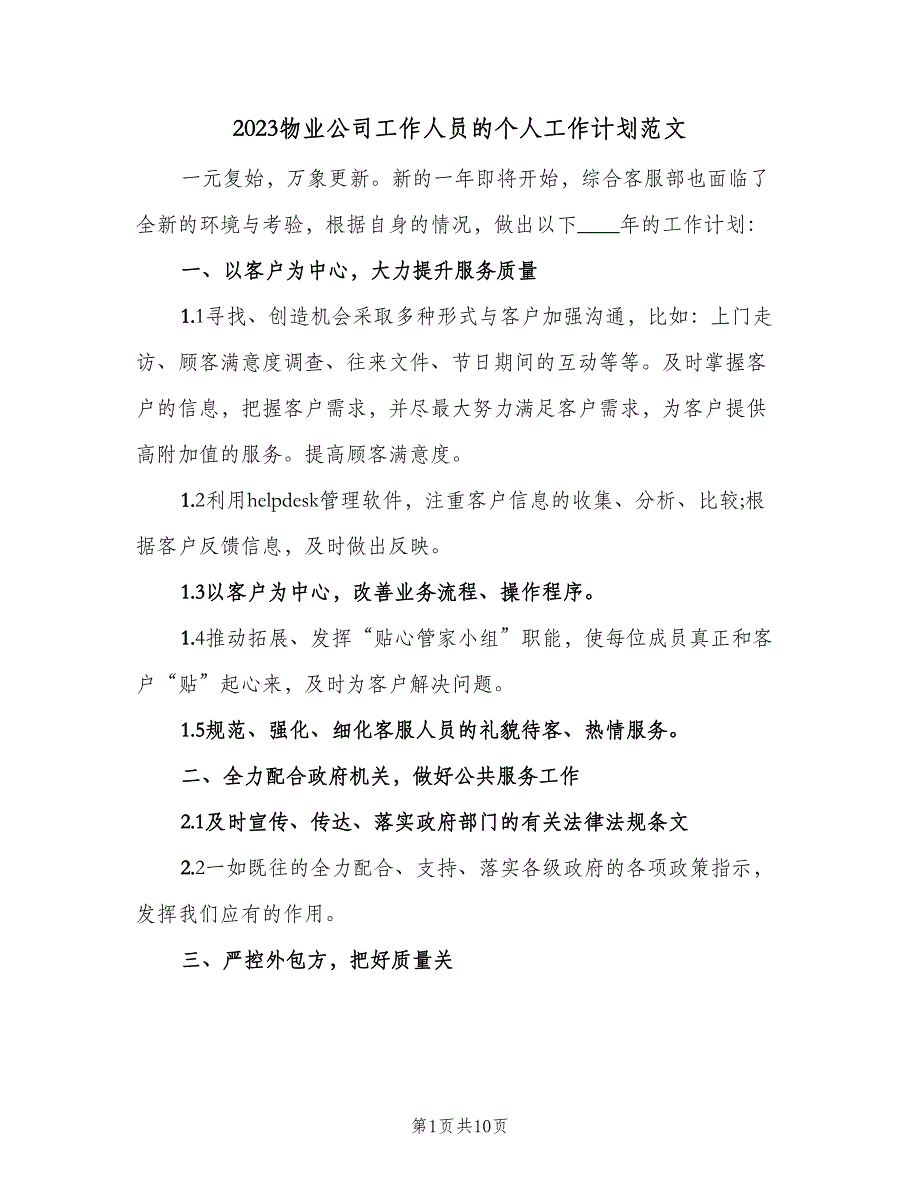 2023物业公司工作人员的个人工作计划范文
一元复始，万象更新。新的一年即将开始，综合客服部也面临了
全新的环境与考验，根据自身的情况，做出以下____年的工作计划：
一、以客户为中心，大力提升服务质量
1.1寻找、创造机会采取多种形式与客户加强沟通，比如：上门走
访、顾客满意度调查、往来文件、节日期间的互动等等。及时掌握客
户的信息，把握客户需求，并尽最大努力满足客户需求，为客户提供
高附加值的服务。提高顾客满意度。
1.2利用helpdesk管理软件，注重客户信息的收集、分析、比较;根
据客户反馈信息，及时做出反映。
1.3以客户为中心，改善业务流程、操作程序。
1.4推动拓展、发挥“贴心管家小组”职能，使每位成员真正和客
户“贴”起心来，及时为客户解决问题。
1.5规范、强化、细化客服人员的礼貌待客、热情服务。
二、全力配合政府机关，做好公共服务工作
2.1及时宣传、传达、落实政府部门的有关法律法规条文
2.2一如既往的全力配合、支持、落实各级政府的各项政策指示，
发挥我们应有的作用。
三、严控外包方，把好质量关
第1页共10页